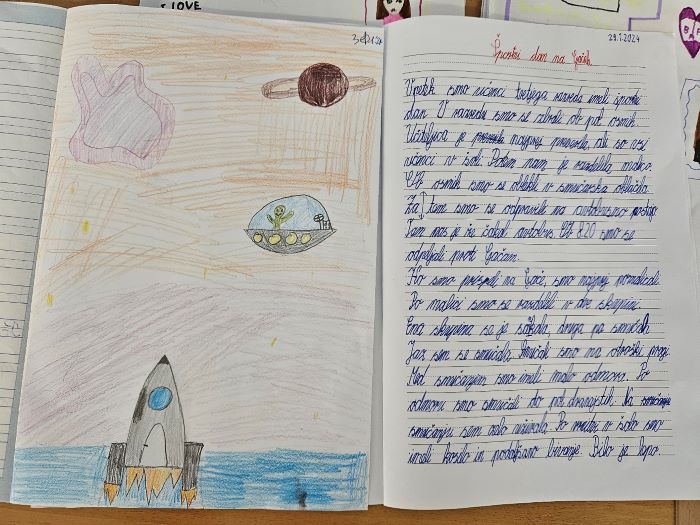 I LOVE
29.1.2024
Športni dan na Gačah
V petek smo učenci tretjega razreda imeli športni
dan. V razredu smo se zbrali ob pol osmih.
Učiteljica je najprej preverila, ali so vsi
učenci v šoli. Potem nam je razdelila malico.
Ob osmih smo se oblekli v smučarska oblačila.
Za tem smo se odpravili na avtobusno postajo.
Tam nas je že čakal avtobus. Ob 8.20 smo se
odpeljali proti Gačam.
Ko smo prispeli na Gače, smo najprej pomalicali.
Po malici smo se razdelili v dve skupini.
Ena skupina se je, druga pa
Jaz sem se smučala. Smučali smo na otroški progi.
Med smučanjem smo imeli malo odmora. Po
odmoru smo smučali do pol dvanajstih. Na
smučanju sem zelo uživala. Po vrnitvi v šolo smo
imeli kosilo in podaljšano bivanje. Bilo je lepo.